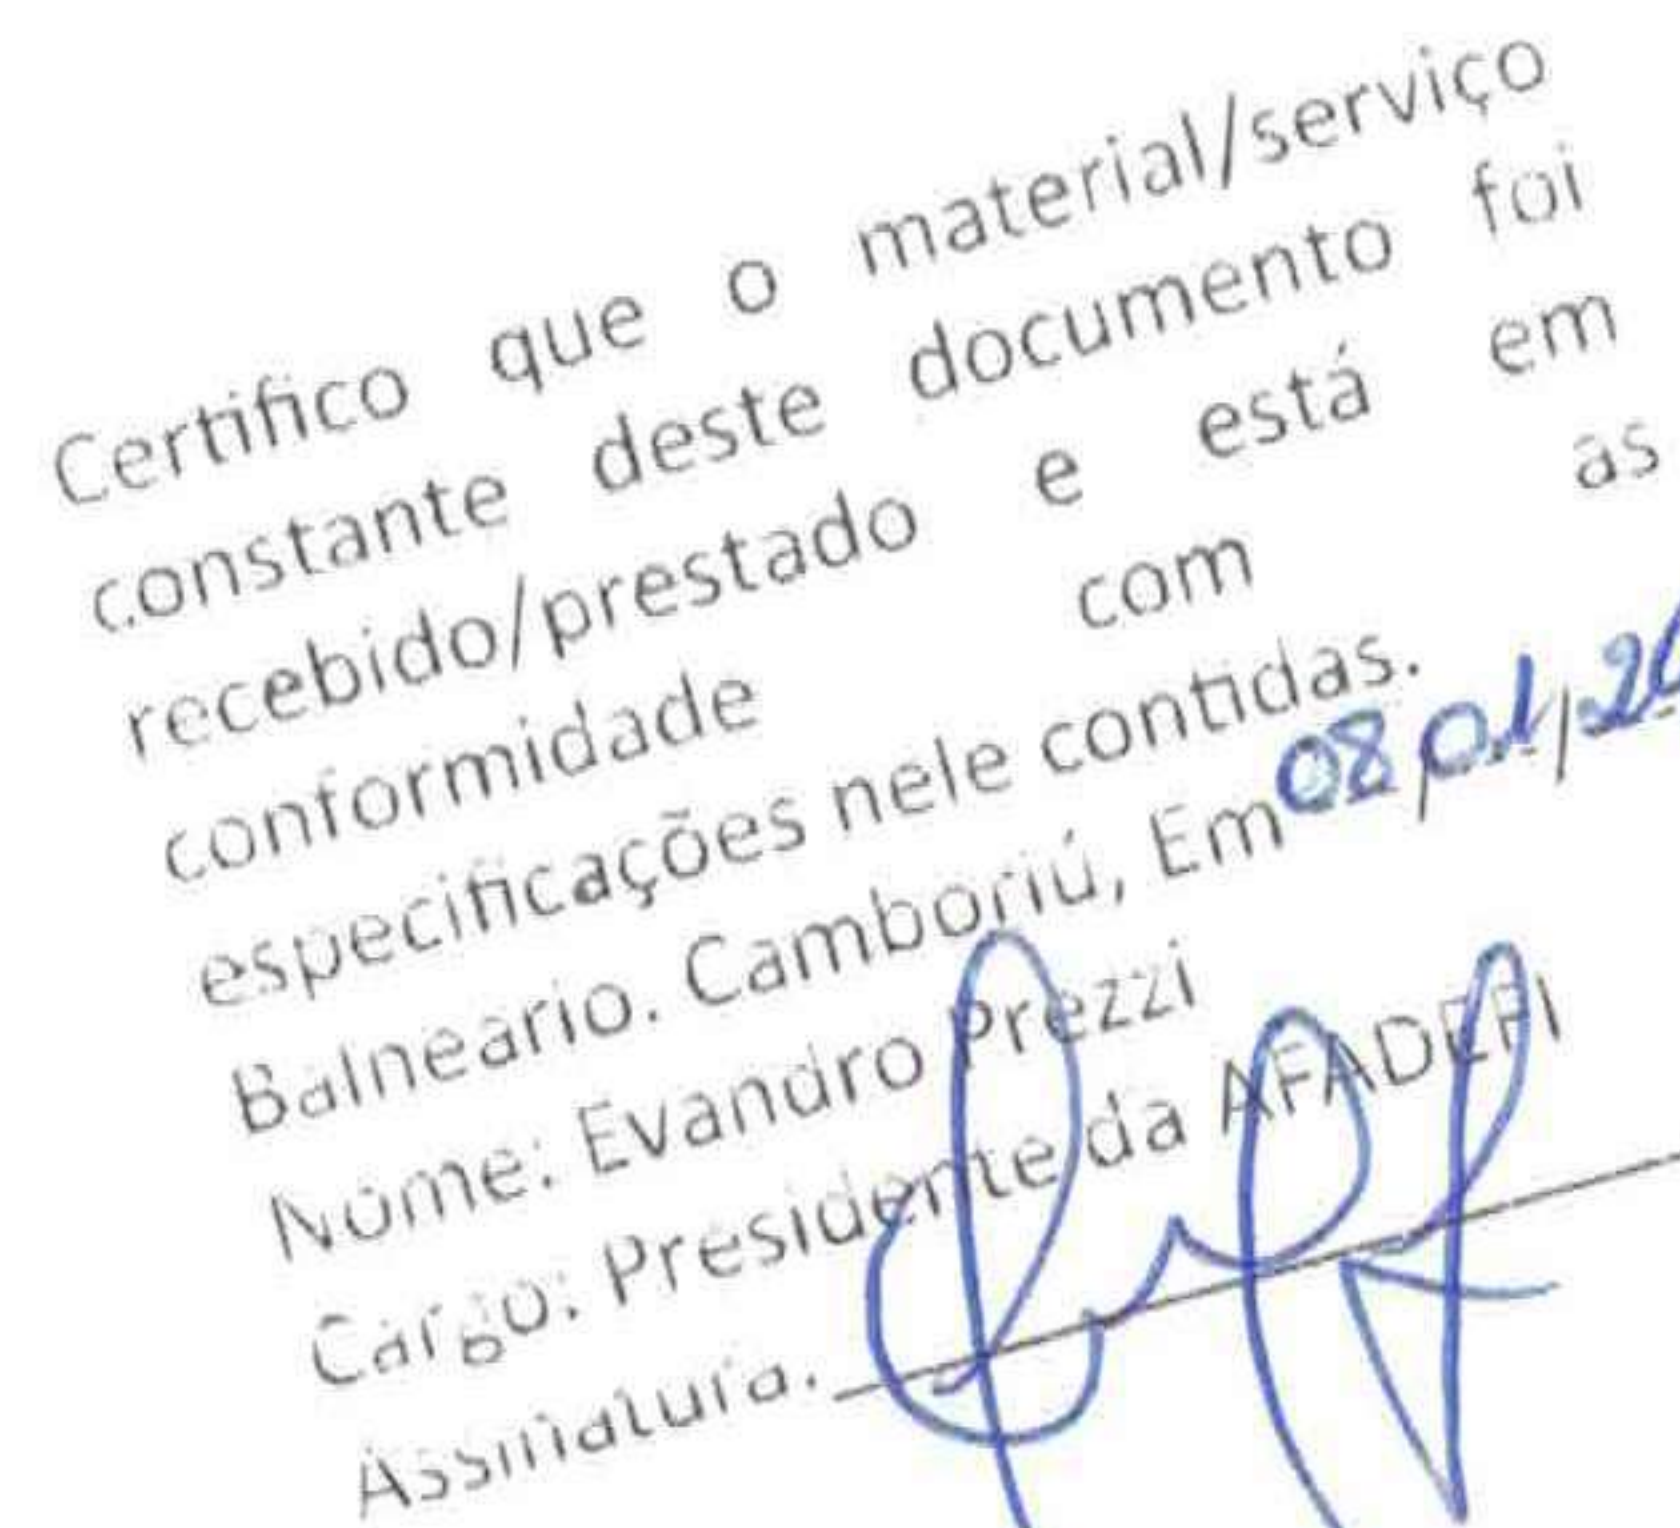 Certifico que o material/serviço
constante deste documento foi
recebido/prestado e está em
conformidade com as
especificações nele contidas.
Balneario. Camboriú, Em 08/01/20
Nome: Evandro Prezzi
Cargo: Presidente da AFADEFI
Assinatura.